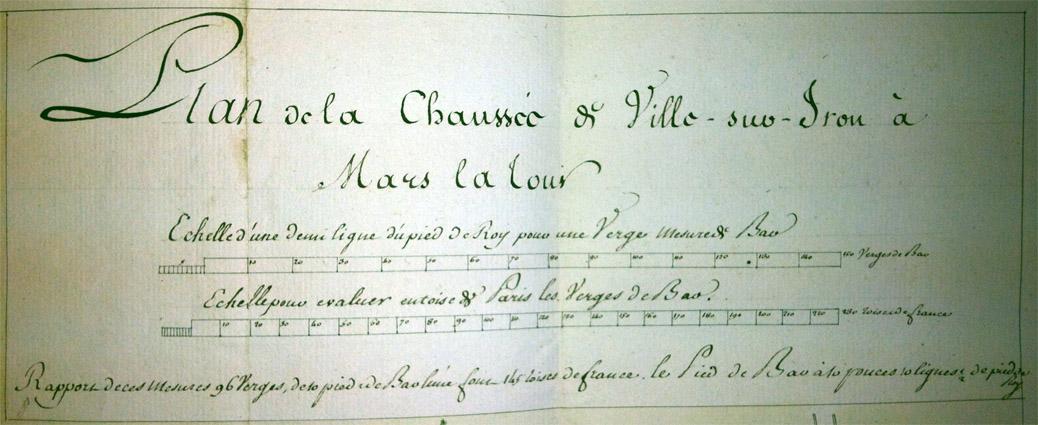 Plan de la Chaussée de Ville-sur-Iron à
Mars la tour
Echelle d'une demi ligne du pied de Roy pour une Verge mesure de Bar
10 20 30 40 50 60 70 80 90 100 110 120 130 140 150 Verges de Bar
Echelle pour evaluer en toise de Paris les Verges de Bar.
10 20 30 40 50 60 70 80 90 100 110 120 130 140 150 160 170 180 190 200 210 220 230 toises de france
Rapport de ces mesures 96 Verges, de 10 pieds de Bar l'une font 145 toises de france. le Pied de Bar à 10 pouces 10 lignes de pied de
Roy